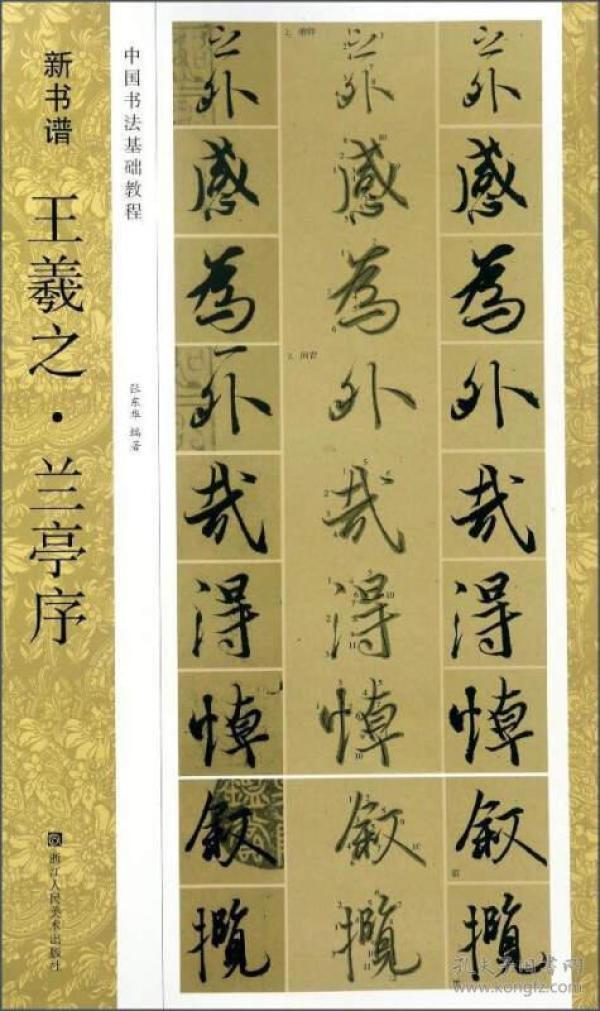 新书谱
王羲之·兰亭序
浙江人民美术出版社
中国书法基础教程
张东华 编著
外 外 外
感 感 感
為 為 為
外 外 外
哉 哉 哉
得 得 得
悼 悼 悼
叙 叙 叙
攬 攬 攬
孔夫子旧书网
www.kongfz.com